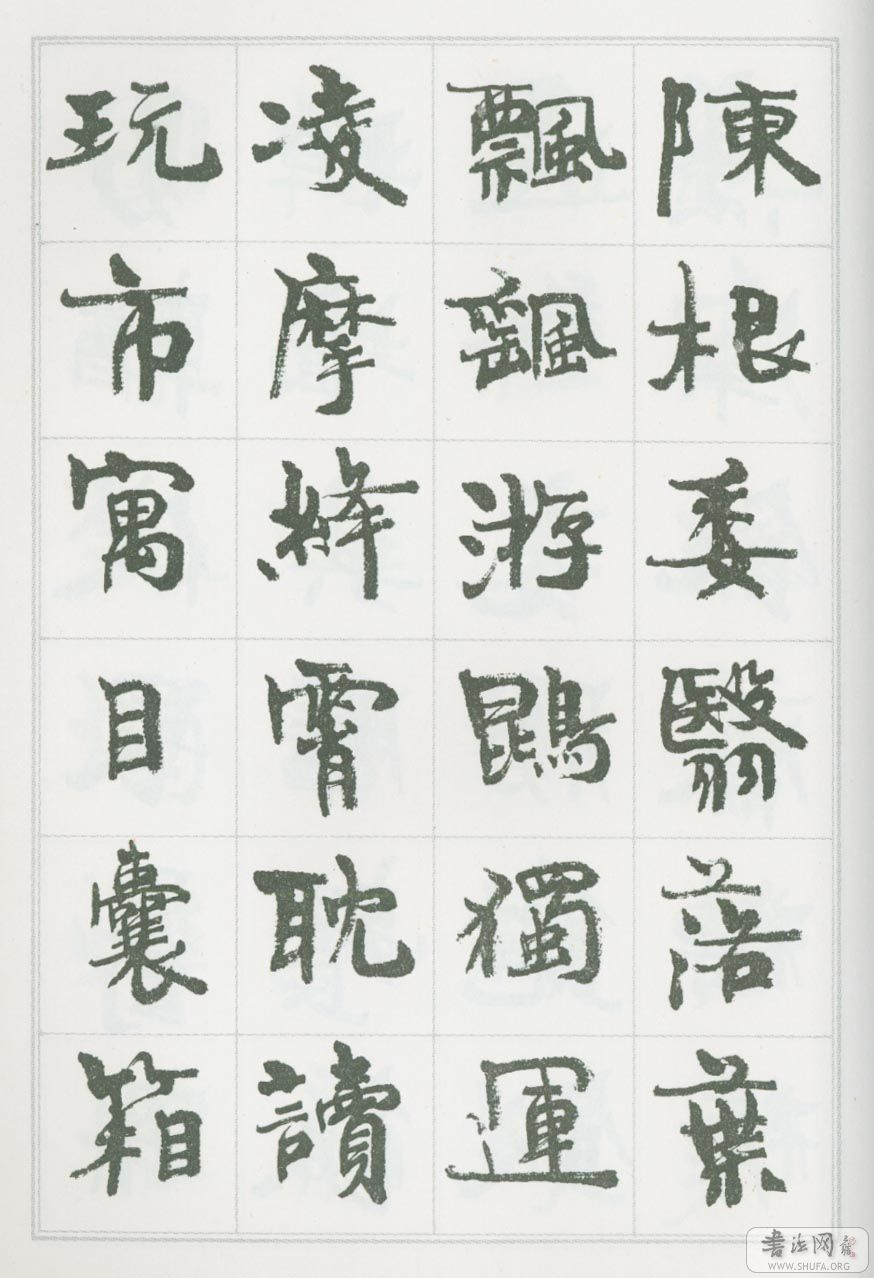 陳根委翳落葉
飄颻游鵾獨運
凌摩絳霄耽讀
玩市寓目囊箱
書法网
WWW.SHUFA.ORG